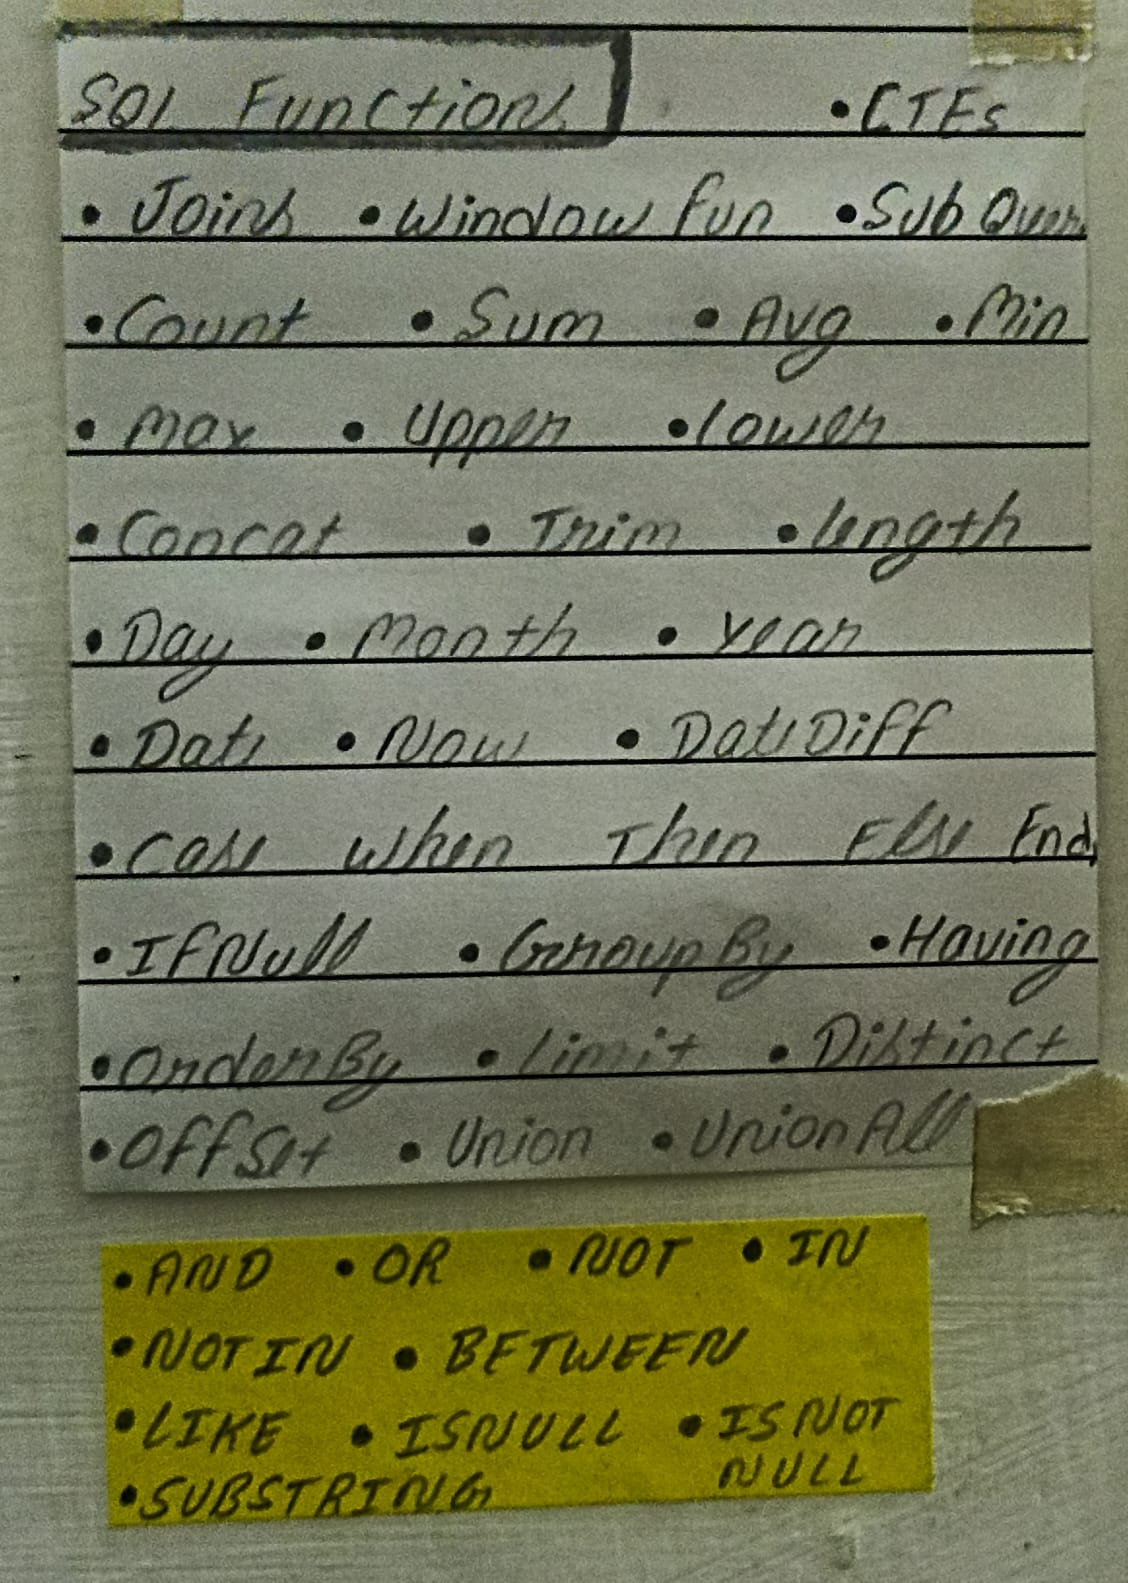 SQL Functions • CTEs
• Joins • Window fun • Sub Quer
• Count • Sum • Avg • Min
• Max • Upper • lower
• Concat • Trim • length
• Day • Month • Year
• Date • Now • DateDiff
• Case When Then Else End
• IfNull • GroupBy • Having
• OrderBy • limit • Distinct
• OffSet • Union • UnionAll
• AND • OR • NOT • IN
• NOT IN • BETWEEN
• LIKE • ISNULL • IS NOT
NULL
• SUBSTRING